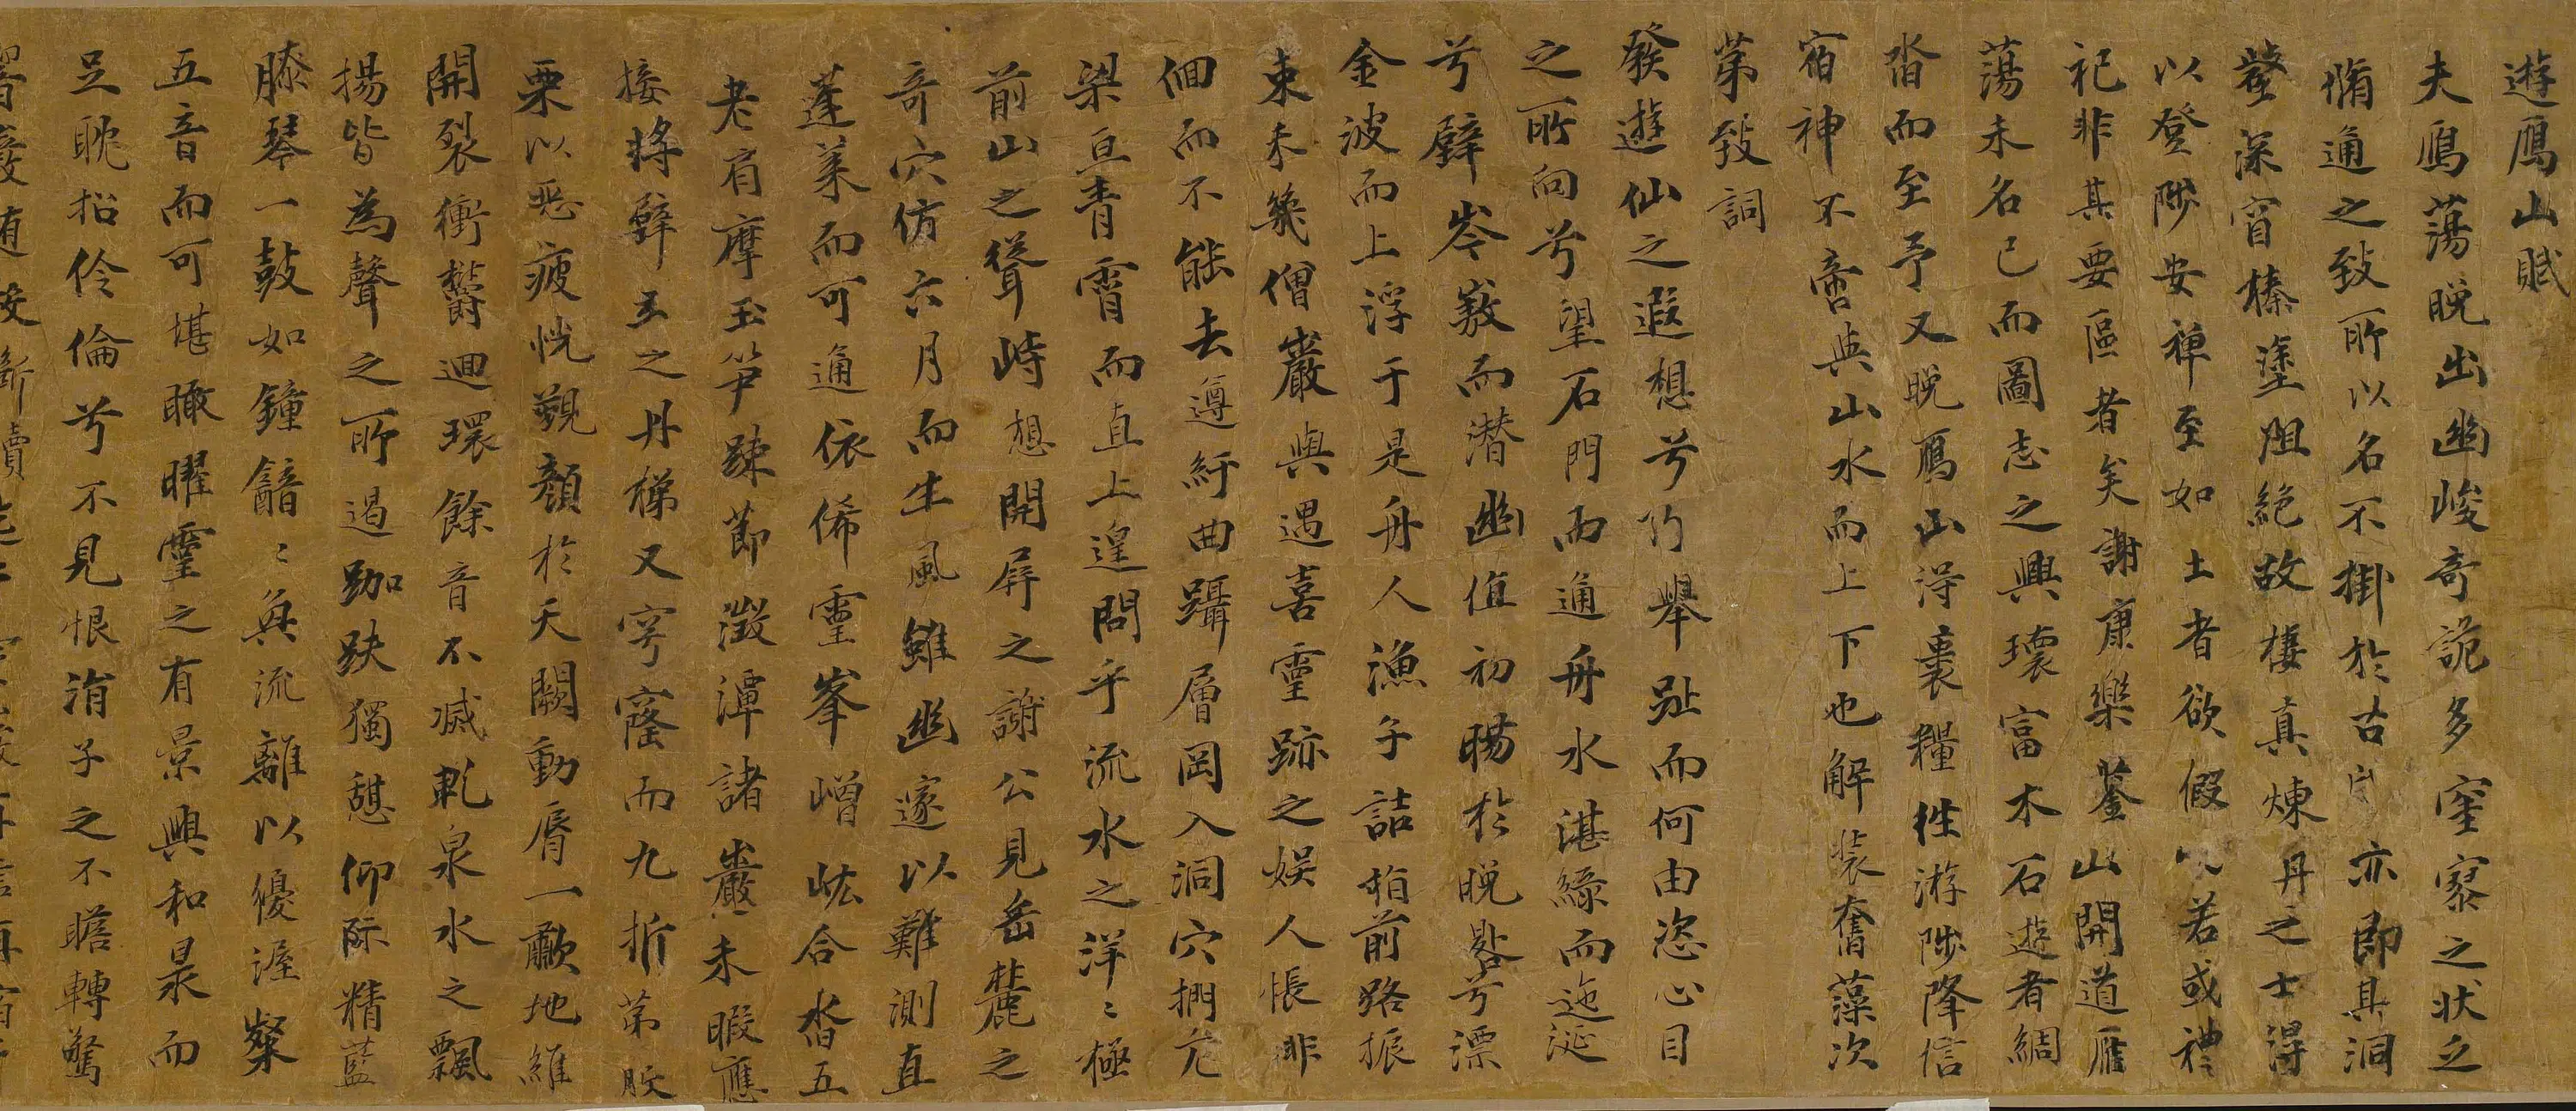 遊鴈山賦
夫鴈蕩晚出幽峻奇詭多窪窾之狀乏
脩通之致所以名不掛於古亦即具洞
壑深窅榛塗阻絕故棲真煉丹之士得
以登陟安禪至如土者欲假以若或禮
祀非其要區者矣謝康樂鑿山開道雁
蕩未名已而圖志之興瓌富木石遊者綢
沓而至予又晚鴈山得裹糧往游陟降信
宿神不啻與山水而上下也解裝奮藻次
第致詞
發遊仙之遐想兮乃舉趾而何由恣心目
之所向兮望石門而通舟水湛綠而迤涎
兮壁岑嶔而潜幽值初暘於晚晷兮漂
金波而上浮于是舟人漁子詰指前路振
束未幾僧巖與遇喜靈跡之娛人悵非
佪而不能去遵紆曲躡層岡入洞穴捫危
梁亘青霄而直上遑問乎流水之洋々極
前山之聳峙想開屏之謝公見岳麓之
奇穴仿六月而生風雖幽邃以難測直
蓬萊而可通依俙靈峯嶒岘合沓五
老肩摩玉笋疎節澂潭諸巖未暇應
接將躋玉之丹梯又穹窿而九折第股
栗以恐疲恍覲顏於天闕動脣一歗地維
開裂衝欝迴環餘音不減乳泉水之飄
揚皆為聲之所遏跏趺獨憇仰际精藍
膝琴一鼓如鐘韽々與流離以優渥粲
五音而可堪瞰曜靈之有景與和景而
足眺招伶倫兮不見恨涓子之不瞻轉驚